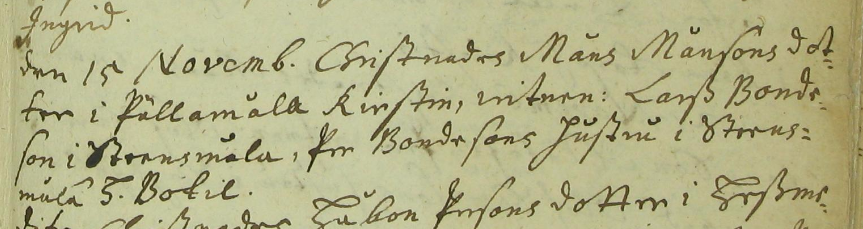 Ingrid.
den 15 Novemb. Christnades Måns Månsons dot=
ter i Pållamåla Kirstin, witnen: Larß Bonde=
son i Steensmåla, Per Bondesons hustru i Steens=
måla H. Bokil.
dito Christnades Håkon Persons dotter i